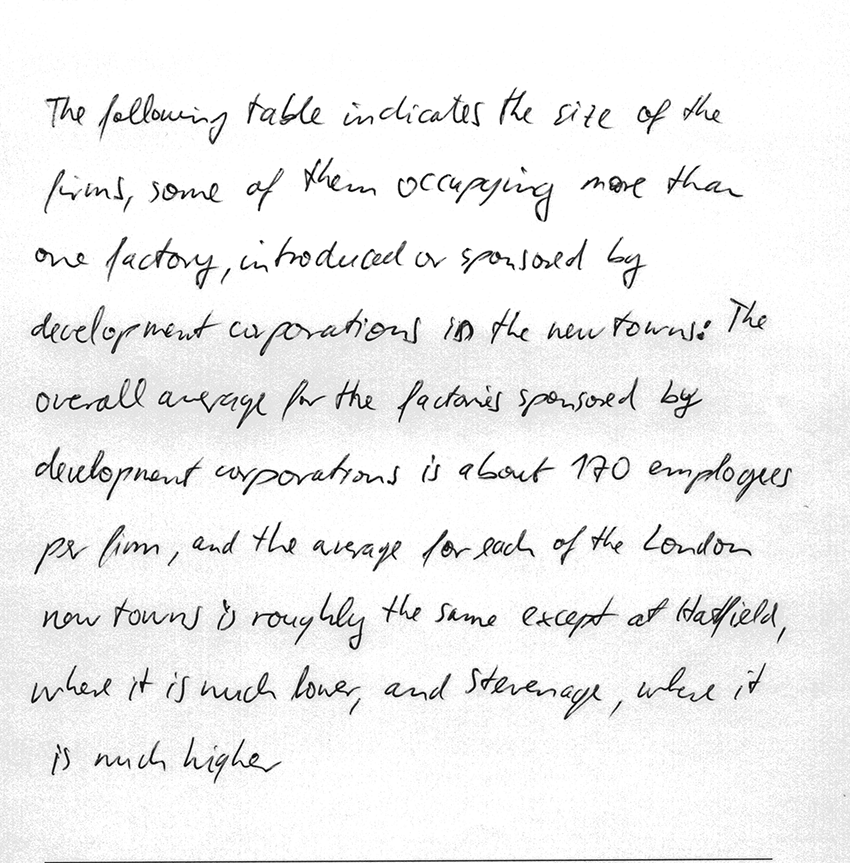 The following table indicates the size of the
firms, some of them occupying more than
one factory, introduced or sponsored by
development corporations in the new towns: The
overall average for the factories sponsored by
development corporations is about 170 employees
per firm, and the average for each of the London
new towns is roughly the same except at Hatfield,
where it is much lower, and Stevenage, where it
is much higher